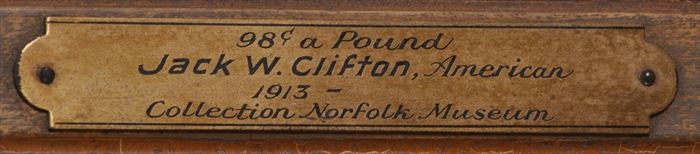 98¢ a Pound
Jack W. Clifton, American
1913 -
Collection Norfolk Museum